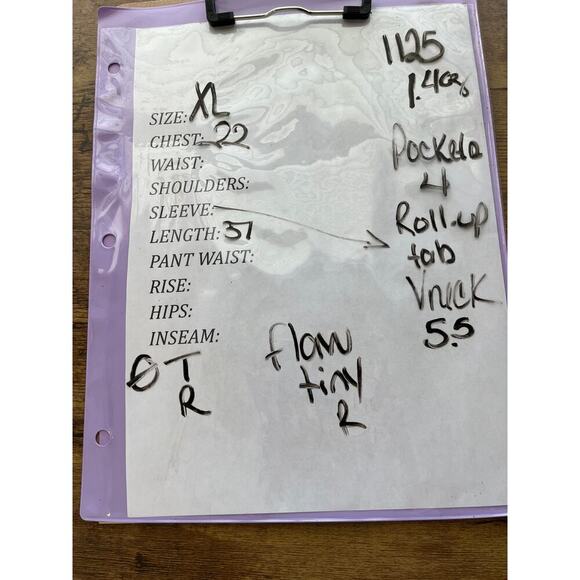 1125
SIZE: XL
CHEST: 22
WAIST:
SHOULDERS:
SLEEVE:
LENGTH: 37
PANT WAIST:
RISE:
HIPS:
INSEAM:
4
Roll-up
tab
Vneck
5.5
T
R
flaw
tiny
R